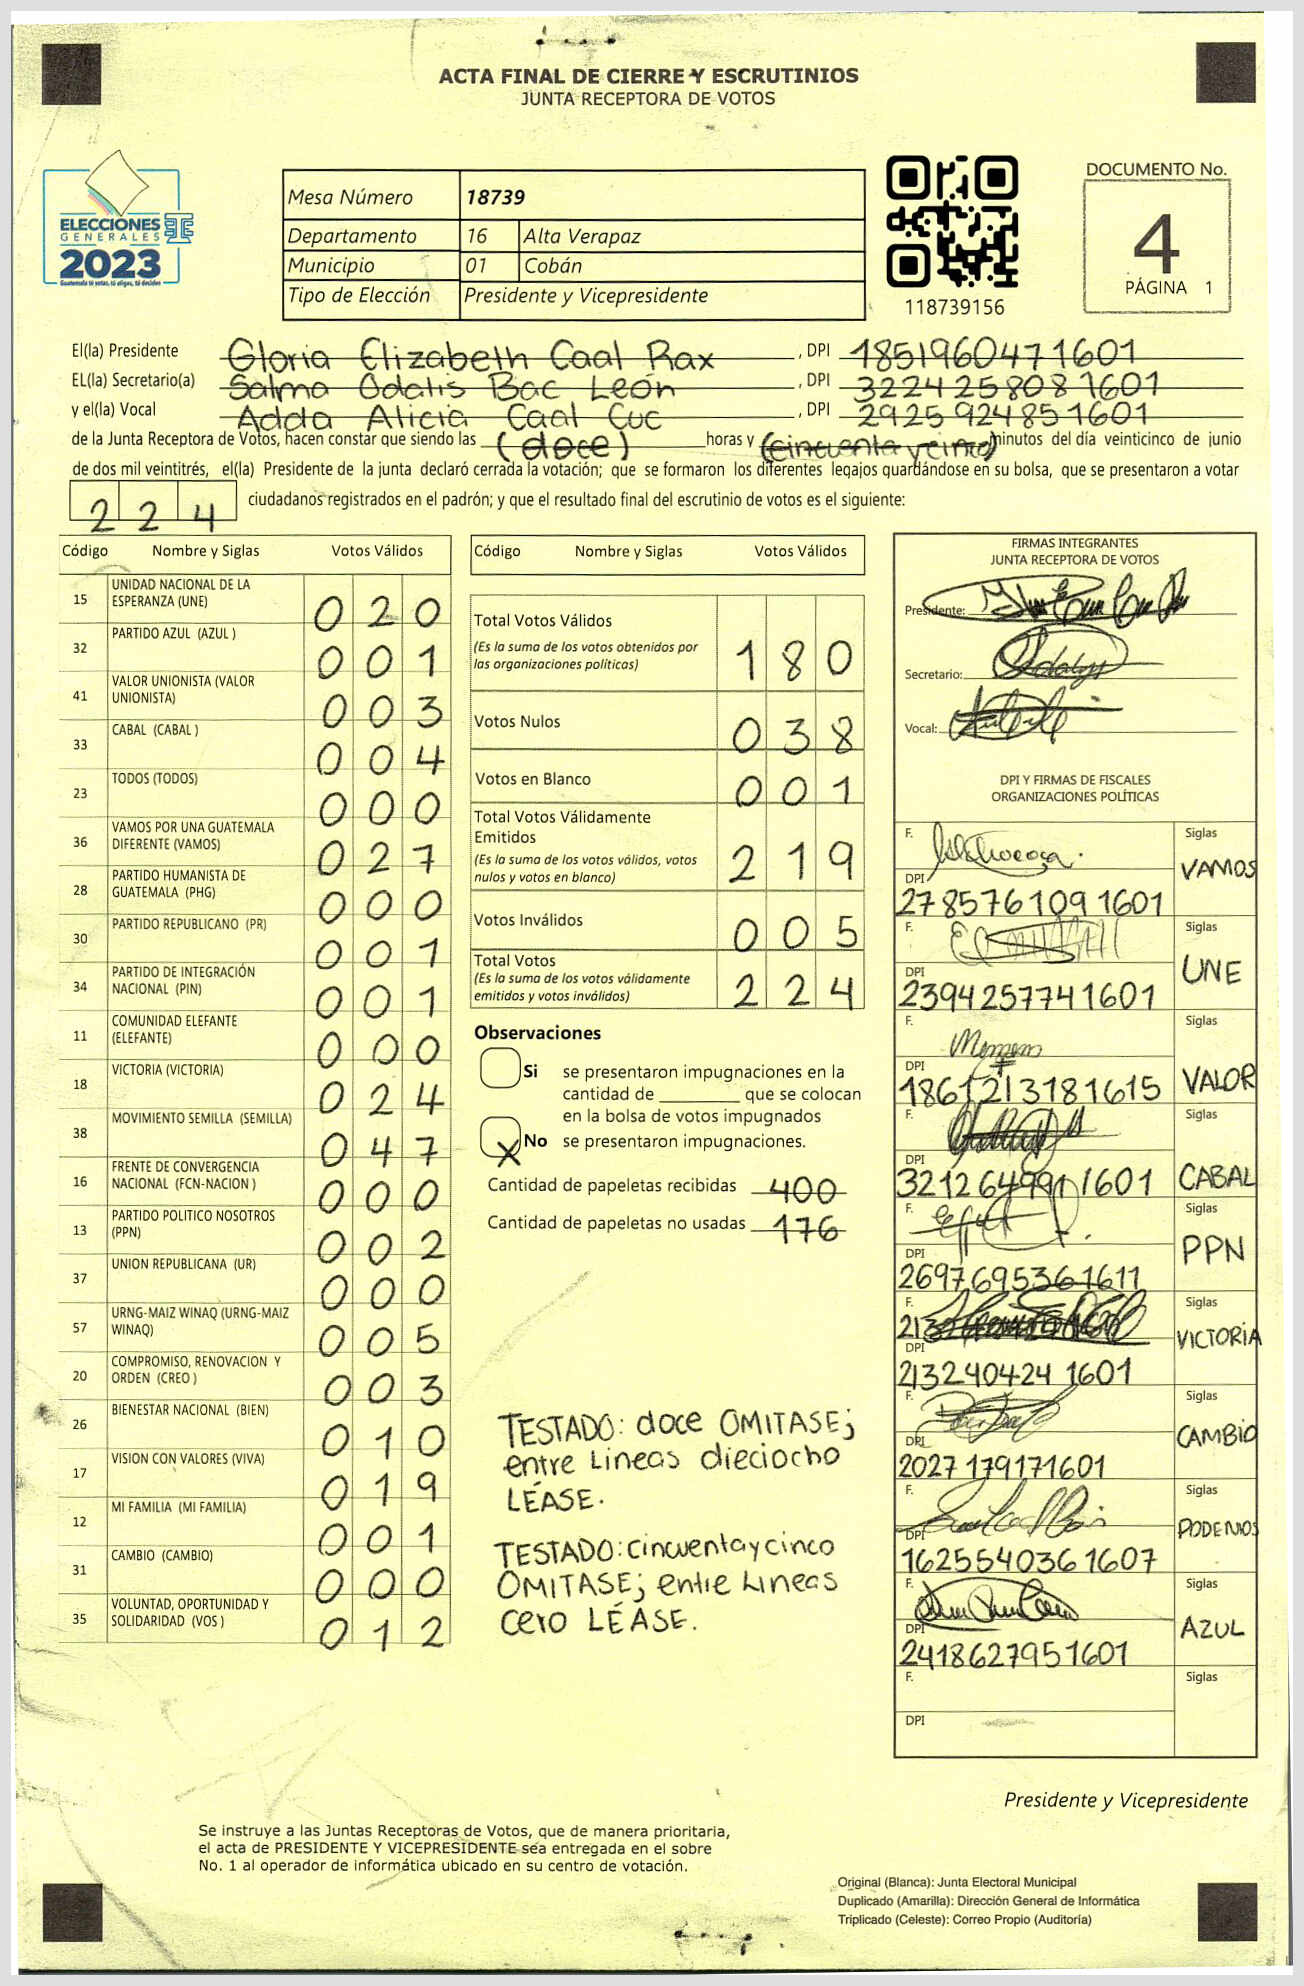 ACTA FINAL DE CIERRE Y ESCRUTINIOS
JUNTA RECEPTORA DE VOTOS
ELECCIONES
GENERALES
2023
Guatemala tú votas, tú eliges, tú decides
Mesa Número 18739
Departamento 16 Alta Verapaz
Municipio 01 Cobán
Tipo de Elección Presidente y Vicepresidente
118739156
DOCUMENTO No.
4
PÁGINA 1
El(la) Presidente Gloria Elizabeth Caal Rax , DPI 1851960471601
EL(la) Secretario(a) Salma Odalis Bac León , DPI 3224258081601
y el(la) Vocal Adda Alicia Caal Cuc , DPI 2925924851601
de la Junta Receptora de Votos, hacen constar que siendo las (doce) horas y (cincuenta y cinco) minutos del día veinticinco de junio
de dos mil veintitrés, el(la) Presidente de la junta declaró cerrada la votación; que se formaron los diferentes legajos guardándose en su bolsa, que se presentaron a votar
224 ciudadanos registrados en el padrón; y que el resultado final del escrutinio de votos es el siguiente:
Código Nombre y Siglas Votos Válidos
15 UNIDAD NACIONAL DE LA ESPERANZA (UNE) 020
32 PARTIDO AZUL (AZUL ) 001
41 VALOR UNIONISTA (VALOR UNIONISTA) 003
33 CABAL (CABAL ) 004
23 TODOS (TODOS) 000
36 VAMOS POR UNA GUATEMALA DIFERENTE (VAMOS) 027
28 PARTIDO HUMANISTA DE GUATEMALA (PHG) 000
30 PARTIDO REPUBLICANO (PR) 001
34 PARTIDO DE INTEGRACIÓN NACIONAL (PIN) 001
11 COMUNIDAD ELEFANTE (ELEFANTE) 000
18 VICTORIA (VICTORIA) 024
38 MOVIMIENTO SEMILLA (SEMILLA) 047
16 FRENTE DE CONVERGENCIA NACIONAL (FCN-NACION ) 000
13 PARTIDO POLITICO NOSOTROS (PPN) 002
37 UNION REPUBLICANA (UR) 000
57 URNG-MAIZ WINAQ (URNG-MAIZ WINAQ) 005
20 COMPROMISO, RENOVACION Y ORDEN (CREO ) 003
26 BIENESTAR NACIONAL (BIEN) 010
17 VISION CON VALORES (VIVA) 019
12 MI FAMILIA (MI FAMILIA) 001
31 CAMBIO (CAMBIO) 000
35 VOLUNTAD, OPORTUNIDAD Y SOLIDARIDAD (VOS ) 012
Código Nombre y Siglas Votos Válidos
Total Votos Válidos
(Es la suma de los votos obtenidos por las organizaciones políticas) 180
Votos Nulos 038
Votos en Blanco 001
Total Votos Válidamente Emitidos
(Es la suma de los votos válidos, votos nulos y votos en blanco) 219
Votos Inválidos 005
Total Votos
(Es la suma de los votos válidamente emitidos y votos inválidos) 224
Observaciones
Si se presentaron impugnaciones en la
cantidad de ________ que se colocan
en la bolsa de votos impugnados
X No se presentaron impugnaciones.
Cantidad de papeletas recibidas 400
Cantidad de papeletas no usadas 176
TESTADO: doce OMITASE;
entre Lineas dieciocho
LÉASE.
TESTADO: cincuenta y cinco
OMITASE; entre Lineas
cero LÉASE.
FIRMAS INTEGRANTES
JUNTA RECEPTORA DE VOTOS
Presidente:
Secretario:
Vocal:
DPI Y FIRMAS DE FISCALES
ORGANIZACIONES POLÍTICAS
F. Siglas
DPI VAMOS
2785761091601
F. Siglas
DPI UNE
2394257741601
F. Siglas
DPI VALOR
1861213181615
F. Siglas
DPI CABAL
3212649911601
F. Siglas
DPI PPN
2697695361611
F. Siglas
DPI VICTORIA
2132404241601
F. Siglas
DPI CAMBIO
2027179171601
F. Siglas
DPI PODEMOS
1625540361607
F. Siglas
DPI AZUL
2418627951601
F. Siglas
DPI
Presidente y Vicepresidente
Se instruye a las Juntas Receptoras de Votos, que de manera prioritaria,
el acta de PRESIDENTE Y VICEPRESIDENTE sea entregada en el sobre
No. 1 al operador de informática ubicado en su centro de votación.
Original (Blanca): Junta Electoral Municipal
Duplicado (Amarilla): Dirección General de Informática
Triplicado (Celeste): Correo Propio (Auditoría)